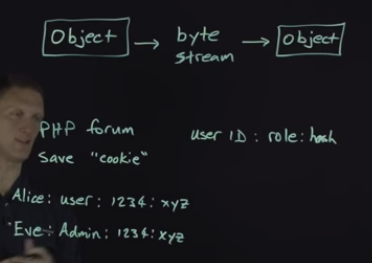 Object → byte stream → Object
PHP forum
save "cookie"
user ID : role : hash
Alice : user : 1234 : xyz
Eve : Admin : 1234 : xyz